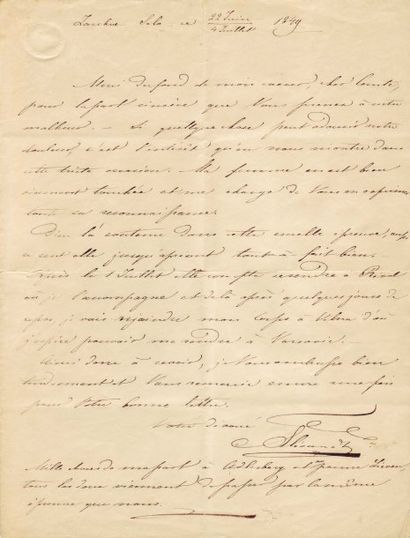 Zarskoe Sélo ce 22 Juin / 4 Juillet 1849
Merci du fond de mon cœur, cher Comte,
pour la part sincère que Vous prenez à notre
malheur. — Si quelque chose peut adoucir notre
douleur, c'est l'intérêt qu'on nous montre dans
cette triste occasion. Ma femme en est bien
vivement touchée et me charge de Vous en exprimer
toute sa reconnaissance.
Dieu l'a soutenue dans cette cruelle épreuve, aussi
s'est elle jusqu'à présent tout-à-fait bien.
le 1 Juillet elle compte se rendre à Réval
où je l'accompagne et de là après quelques jours de
repos je vais rejoindre mon Corps à d'où
j'espère pouvoir me rendre à Varsovie. —
Ainsi donc à revoir, je Vous embrasse bien
tendrement et Vous remercie encore une fois
pour Votre bonne lettre.
Votre dévoué
Alexandre
Mille choses de ma part à Adlerberg et
tous les deux viennent de passer par la même
épreuve que nous.